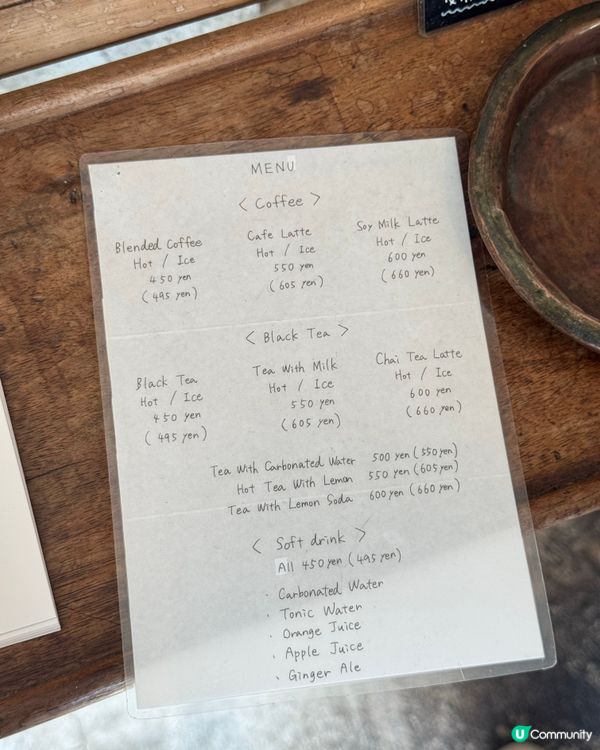 MENU
< Coffee >
Blended Coffee
Hot / Ice
450 yen
(495 yen)
Cafe Latte
Hot / Ice
550 yen
(605 yen)
Soy Milk Latte
Hot / Ice
600 yen
(660 yen)
< Black Tea >
Black Tea
Hot / Ice
450 yen
(495 yen)
Tea With Milk
Hot / Ice
550 yen
(605 yen)
Chai Tea Latte
Hot / Ice
600 yen
(660 yen)
Tea With Carbonated Water 500 yen (550 yen)
Hot Tea With Lemon 550 yen (605 yen)
Tea With Lemon Soda 600 yen (660 yen)
< Soft drink >
All 450 yen (495 yen)
· Carbonated Water
· Tonic Water
· Orange Juice
· Apple Juice
· Ginger Ale
U Community